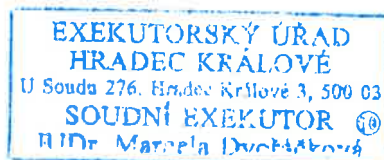 EXEKUTORSKÝ ÚŘAD
HRADEC KRÁLOVÉ
U Soudu 276, Hradec Králové 3, 500 03
SOUDNÍ EXEKUTOR 10
JUDr. Marcela Dvořáčková